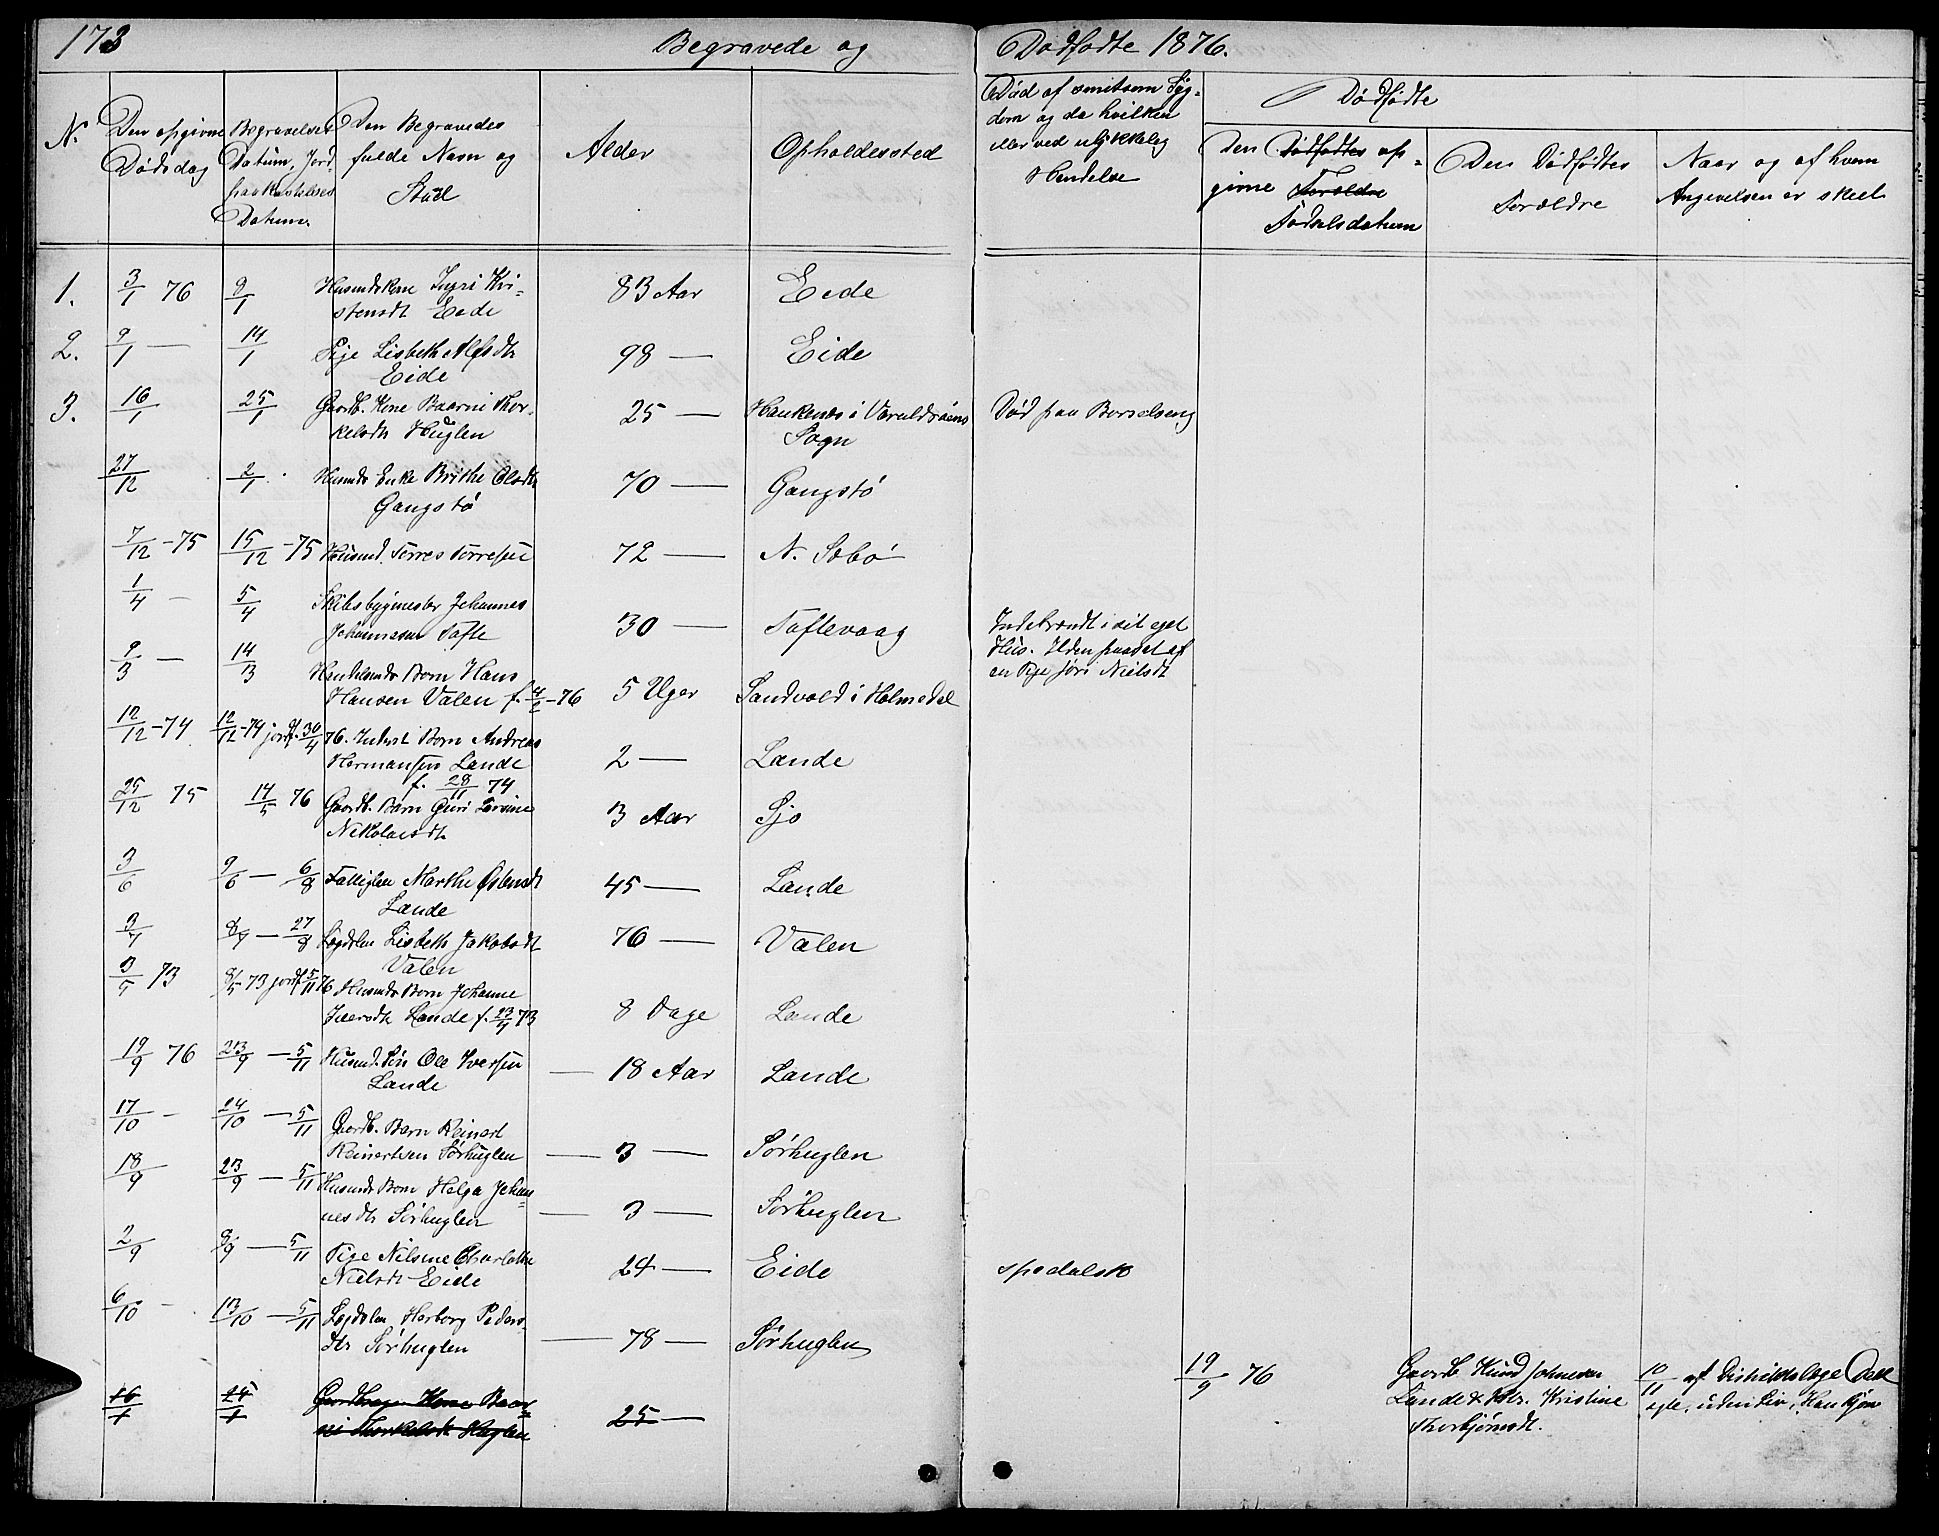 173 Begravede og Dødfødte 1876.
N. Den opgivne Dødsdag
Begravelses Datum, Jordpaakastelses Datum.
Den Begravedes fulde Navn og Stad
Alder
Opholdessted
Død af smitsom Sygdom og da hvilken eller ved ulykkelig Hændelse
Dødfødte
Den Dødfødtes opgivne Forældre Fødselsdatum
Den Dødfødtes Forældre
Naar og af hvem Angivelsen er skeet
1. 3/1 76 9/1 Husmdskone Ingri Kri-
stensdt Eide 83 Aar Eide
2. 9/1 — 14/1 Pige Lisbeth Alfsdtr
Eide 98 — Eide
3. 16/1 25/1 Gaardb. Kone Baarni Thor-
kelsdtr Huglen 25 — Haukenæs i Væraldsøens
Sogn Død paa Barselseng
27/12 2/1 Husmds Enke Brithe Olsdtr
Gangstø 70 — Gangstø
7/12 - 75 15/12 - 75 Husmd. Torres Torresen 72 — N. Sæbø
1/4 — 5/4 Skibsbygmester Johannes
Johannesen Tofte 30 — Toftevaag Indebrændt i sit eget
Hus. Ilden paasat af
en Pige Jøri Nielsdt
9/3 — 14/3 Barn Hans
Hansen Valen f. 4/2 - 76 5 Uger Sandvold i Holmedal
12/12 - 74 12/12 - 74 jordf. 30/4 76. Inderst Barn Andreas
Hermansen Lande 2 — Lande
f. 28/11 74
25/12 75 14/5 76 Gaardb. Barn Guri
Nikolaisdtr 3 Aar Sjo
3/6 9/6 — 6/8 Fattiglem Marthe Østensdt
Lande 45 — Lande
3/7 8/7 — 27/8 Lægdslem Lisbeth Jakobsdt
Valen 76 — Valen
3/5 73 8/5 73 jordf 5/11 76 Husmds Barn Johanne
Iversdtr Lande f. 23/4 73 8 Dage Lande
19/9 76 23/9 — 5/11 Husmd. Søn Ole Iversen
Lande — 18 Aar Lande
17/10 — 24/10 — 5/11 Gaardb. Barn Reinert
Reinertsen Sørhuglen — 3 — Sørhuglen
18/9 23/9 — 5/11 Husmds Barn Helga Johan-
nesdtr Sørhuglen — 3 — Sørhuglen
2/9 8/9 — 5/11 Pige Nilsine Charlothe
Nielsdt Eide 24 — Eide spedalsk
6/10 — 13/10 — 5/11 Lægdslem Herborg Peders-
dtr Sørhuglen — 78 — Sørhuglen
19/9 76 Gaardb Knud Johnesen
Lande & Hstr. Kristine
Thorbjørnsdt.
10/11 af Distriktslæge Dahl
egte, uden Liv, Hankjøn
16/1 25/1 Gaardbruger Kone Baar-
ni Thorkelsdt Huglen 25 —